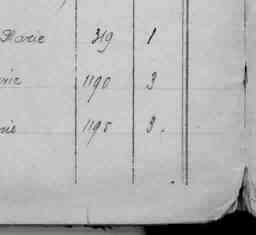 Marie 319 1
rie 1190 3
rie 1195 3.